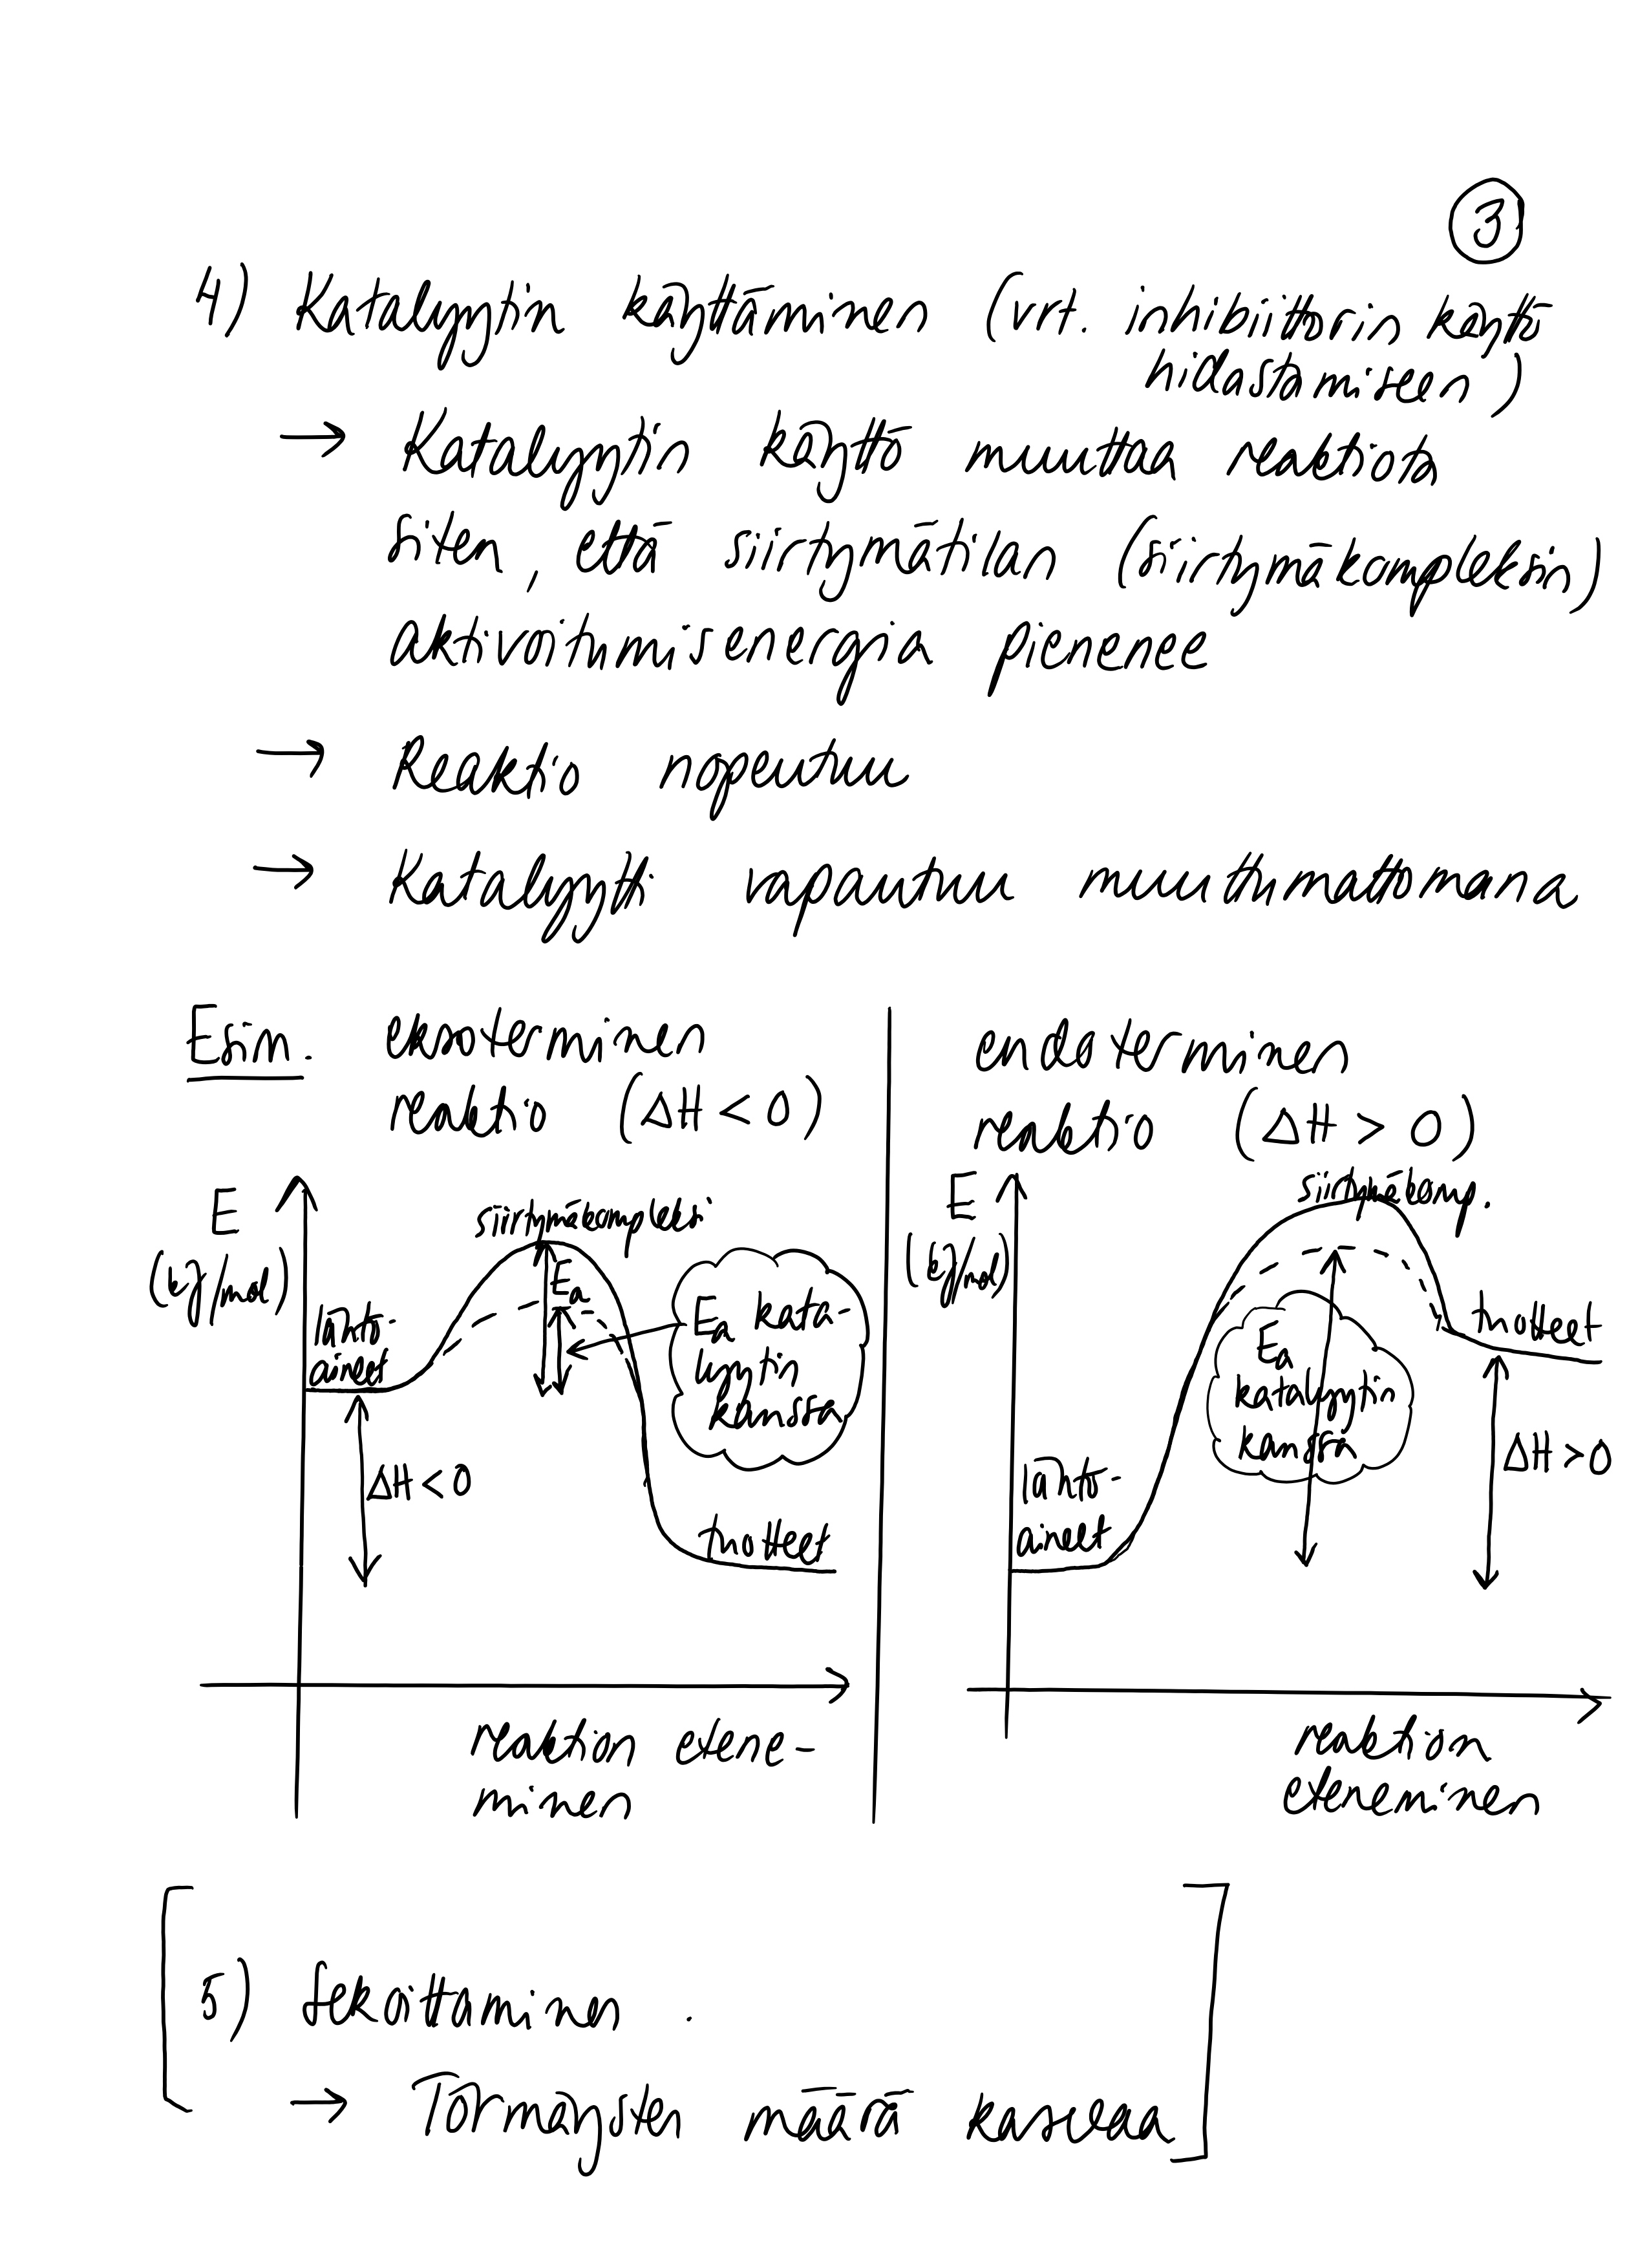 3
4) Katalyytin käyttäminen (vrt. inhibiittorin käyttö
hidastamiseen)
→ Katalyytin käyttö muuttaa reaktiota
siten, että siirtymätilan (siirtymäkompleksin)
aktivoitumisenergia pienenee
→ Reaktio nopeutuu
→ Katalyytti vapautuu muuttumattomana
Esim. eksoterminen
reaktio (ΔH < 0)
E
(kJ/mol)
siirtymäkompleksi
Ea
lähtö-
aineet
Ea kata-
lyytin
kanssa
ΔH < 0
tuotteet
reaktion etene-
minen
endoterminen
reaktio (ΔH > 0)
E
(kJ/mol)
siirtymäkomp.
tuotteet
Ea
katalyytin
kanssa
ΔH > 0
lähtö-
aineet
reaktion
eteneminen
5) Sekoittaminen.
→ Törmäysten määrä kasvaa